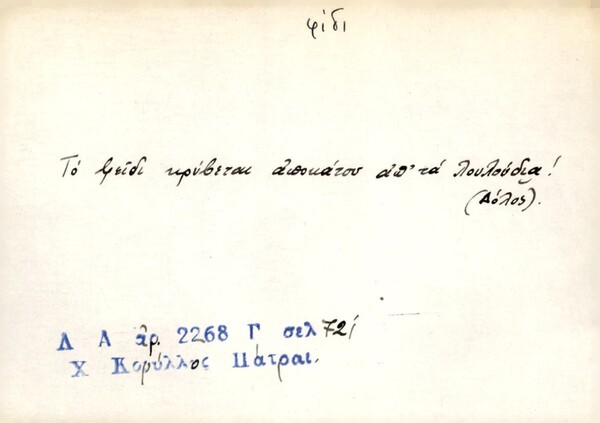 φίδι
Τό φεῖδι κρύβεται ἀποκάτου ἀπ' τά λουλούδια!
(Δόλος).
Λ Α ἀρ. 2268 Γ σελ 721
Χ Κορύλλος Πάτραι.